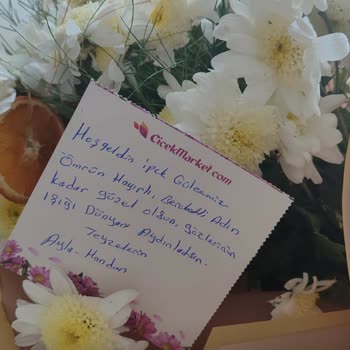 CicekMarket.com
Hoşgeldin ipek Gülesimiz
Ömrün Hayırlı, Bereketli Adın
kadar güzel olsun, gözlerinin
ışığı Dünyanı Aydınlatsın.
Teyzelerin
Ayla - Handan